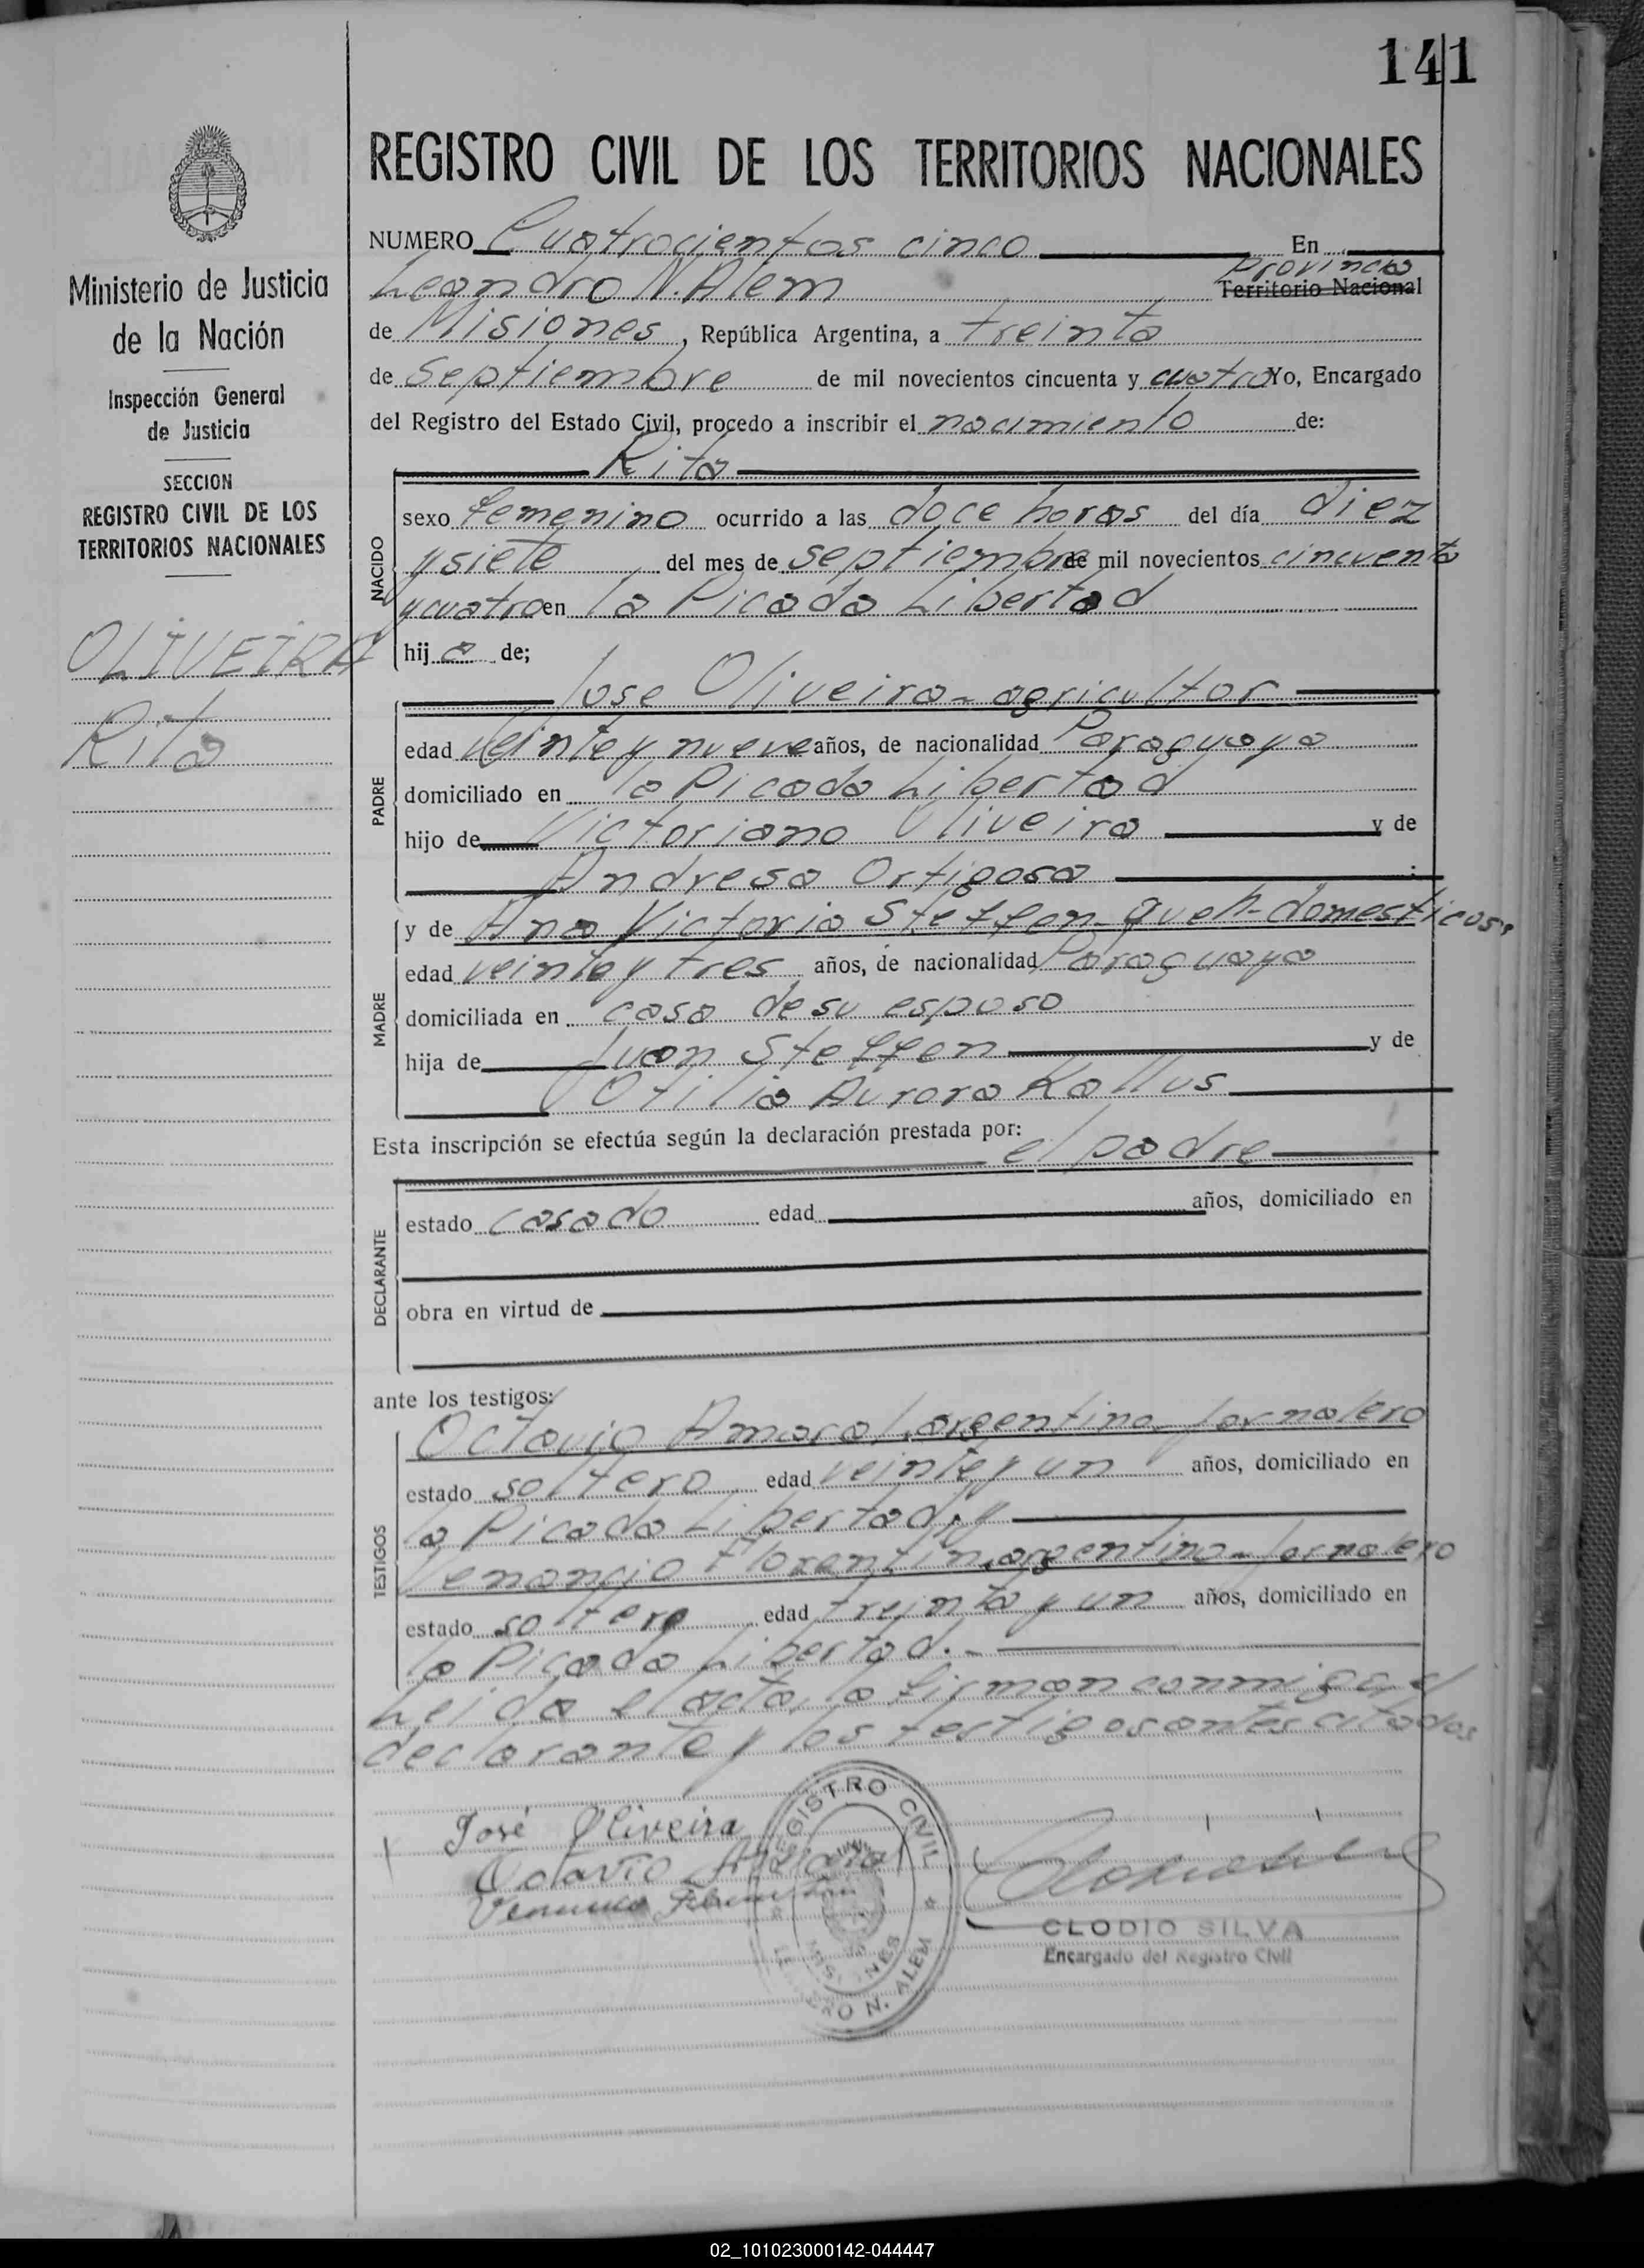 141
REGISTRO CIVIL DE LOS TERRITORIOS NACIONALES
Ministerio de Justicia
de la Nación
Inspección General
de Justicia
SECCION
REGISTRO CIVIL DE LOS
TERRITORIOS NACIONALES
OLIVEIRA
Rita
NUMERO Cuatrocientos cinco En
Provincia
Leandro N. Alem Territorio Nacional
de Misiones, República Argentina, a treinta
de Septiembre de mil novecientos cincuenta y cuatro Yo, Encargado
del Registro del Estado Civil, procedo a inscribir el nacimiento de:
Rita
NACIDO
sexo femenino ocurrido a las doce horas del día diez
y siete del mes de septiembre de mil novecientos cincuenta
y cuatro en la Picada Libertad
hija de;
Jose Oliveira - agricultor
PADRE
edad veinte y nueve años, de nacionalidad Paraguaya
domiciliado en la Picada Libertad
hijo de Victoriano Oliveira y de
Andresa Ortigosa
MADRE
y de Ana Victoria Steffen - queh-domesticos,
edad veinte y tres años, de nacionalidad Paraguaya
domiciliada en casa de su esposo
hija de Juan Steffen y de
Otilia Aurora Kallus
Esta inscripción se efectúa según la declaración prestada por: el padre
DECLARANTE
estado casado edad años, domiciliado en
obra en virtud de
ante los testigos:
TESTIGOS
Octavio Amaral, argentino - jornalero
estado soltero edad veinte y un años, domiciliado en
la Picada Libertad. y
Venancio Florentin, argentino - jornalero
estado soltero edad treinta y un años, domiciliado en
la Picada Libertad. -
Leida el acta, la firman conmigo, el
declarante y los testigos antes citados
José Oliveira
Octavio Amaral
Venancio Florentin
REGISTRO CIVIL
MISIONES
LEANDRO N. ALEM
CLODIO SILVA
Encargado del Registro Civil
02_101023000142-044447